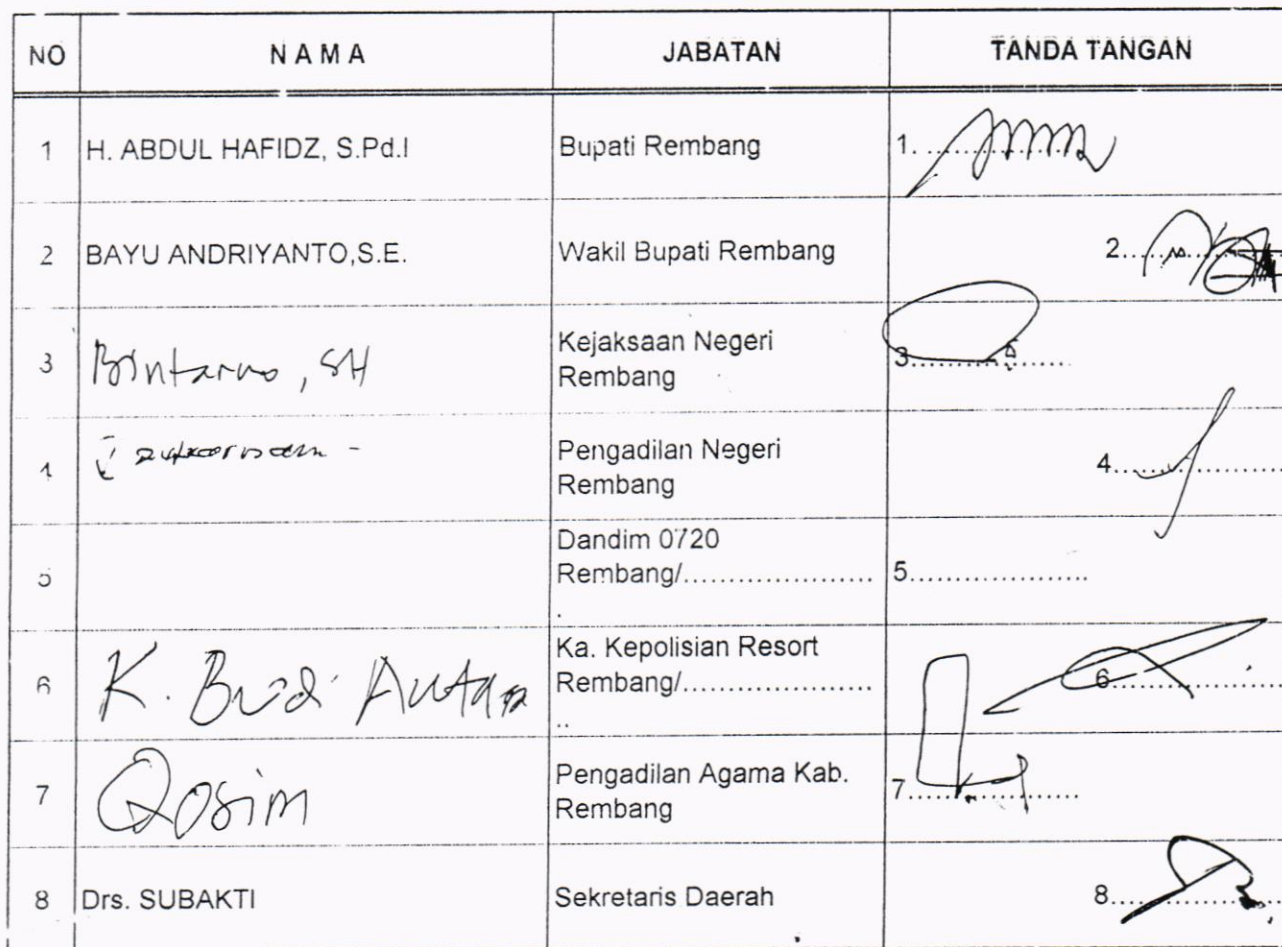 NO NAMA JABATAN TANDA TANGAN
1 H. ABDUL HAFIDZ, S.Pd.I Bupati Rembang 1. ............
2 BAYU ANDRIYANTO,S.E. Wakil Bupati Rembang 2............
3 Bintarno, SH Kejaksaan Negeri
Rembang 3............
4 Pengadilan Negeri
Rembang 4............
5 Dandim 0720
Rembang/...................... 5............
.
6 K. Budi Ka. Kepolisian Resort
Rembang/...................... 6............
..
7 Qosim Pengadilan Agama Kab.
Rembang 7............
8 Drs. SUBAKTI Sekretaris Daerah 8............